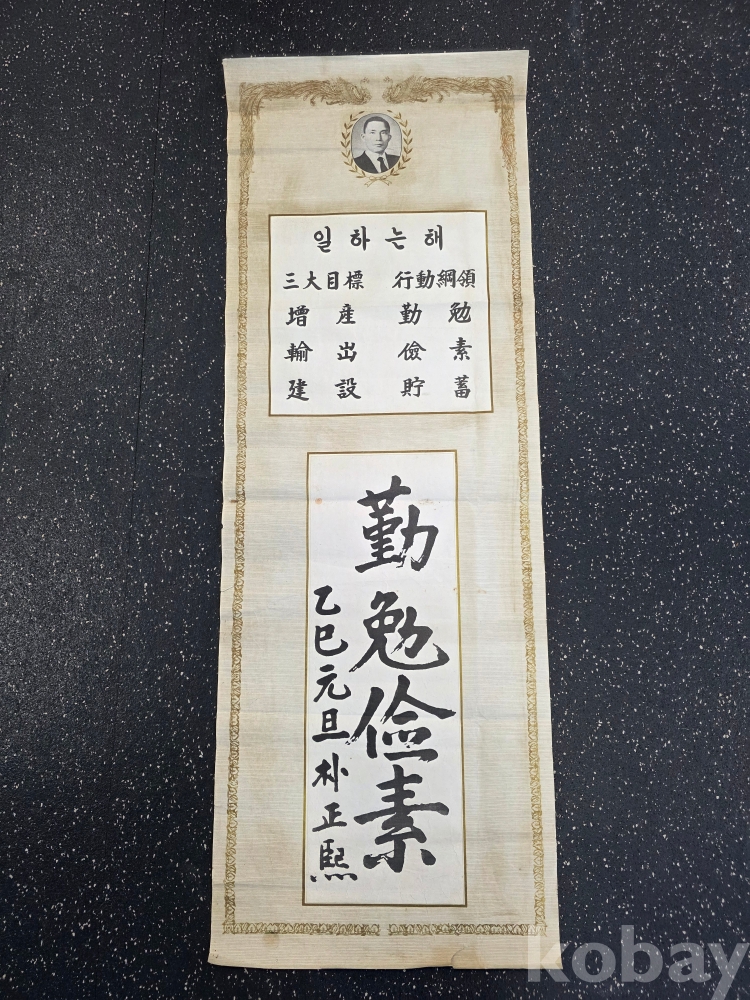 일하는해
三大目標 行動綱領
增産 勤勉
輸出 儉素
建設 貯蓄
勤勉儉素
乙巳元旦 朴正熙
kobay